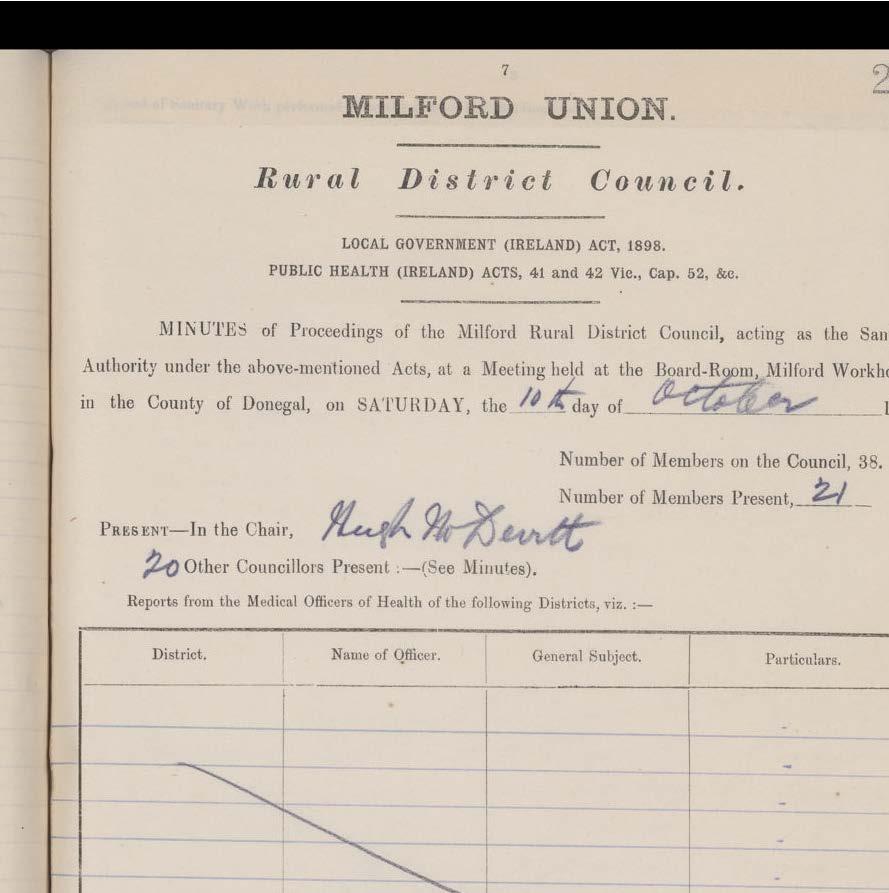 7
2
MILFORD UNION.
Rural District Council.
LOCAL GOVERNMENT (IRELAND) ACT, 1898.
PUBLIC HEALTH (IRELAND) ACTS, 41 and 42 Vic., Cap. 52, &c.
MINUTES of Proceedings of the Milford Rural District Council, acting as the San
Authority under the above-mentioned Acts, at a Meeting held at the Board-Room, Milford Workho
in the County of Donegal, on SATURDAY, the 10th day of October 1
Number of Members on the Council, 38.
Number of Members Present, 21
PRESENT—In the Chair, Hugh McDevitt
20 Other Councillors Present :—(See Minutes).
Reports from the Medical Officers of Health of the following Districts, viz. :—
District. Name of Officer. General Subject. Particulars.